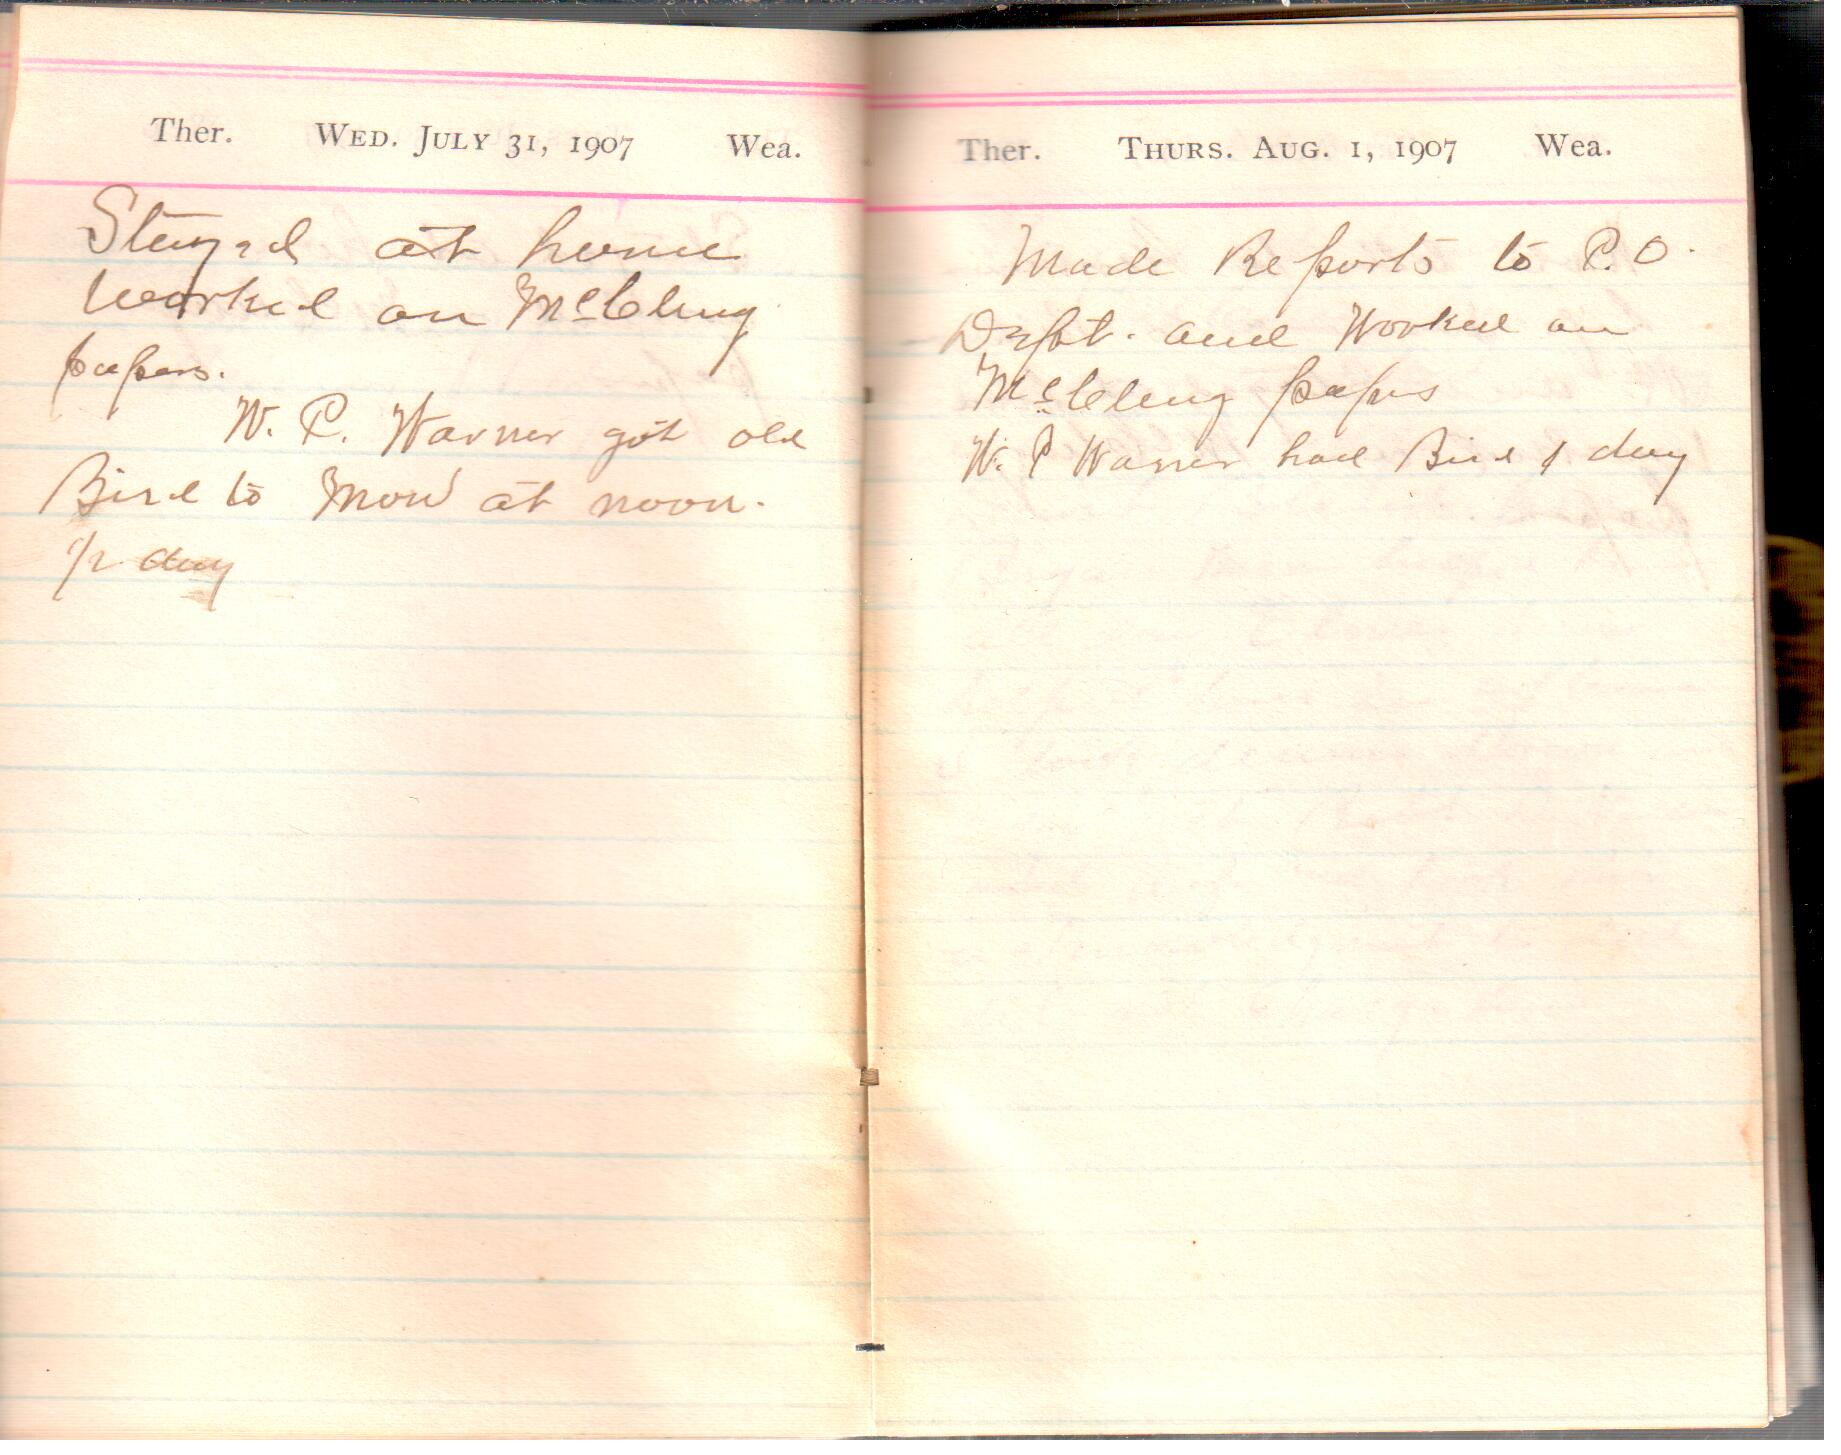 Ther. Wed. July 31, 1907 Wea.
Stayed at home
Worked on McClung
papers.
W. P. Warner got old
Bird to Mow at noon.
1/2 day
Ther. Thurs. Aug. 1, 1907 Wea.
Made Reports to P.O.
Dept. and Worked on
McClung papers
W. P Warner had Bird 1 day